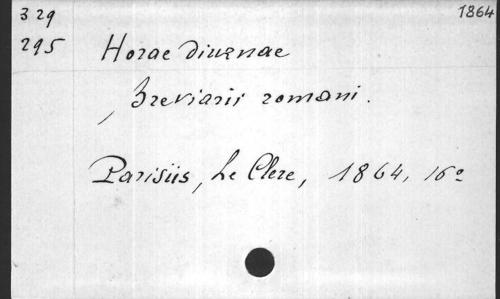 329 1864
295 Horae diurnae
Breviarii romani.
Parisiis, Le Clere, 1864, 16º